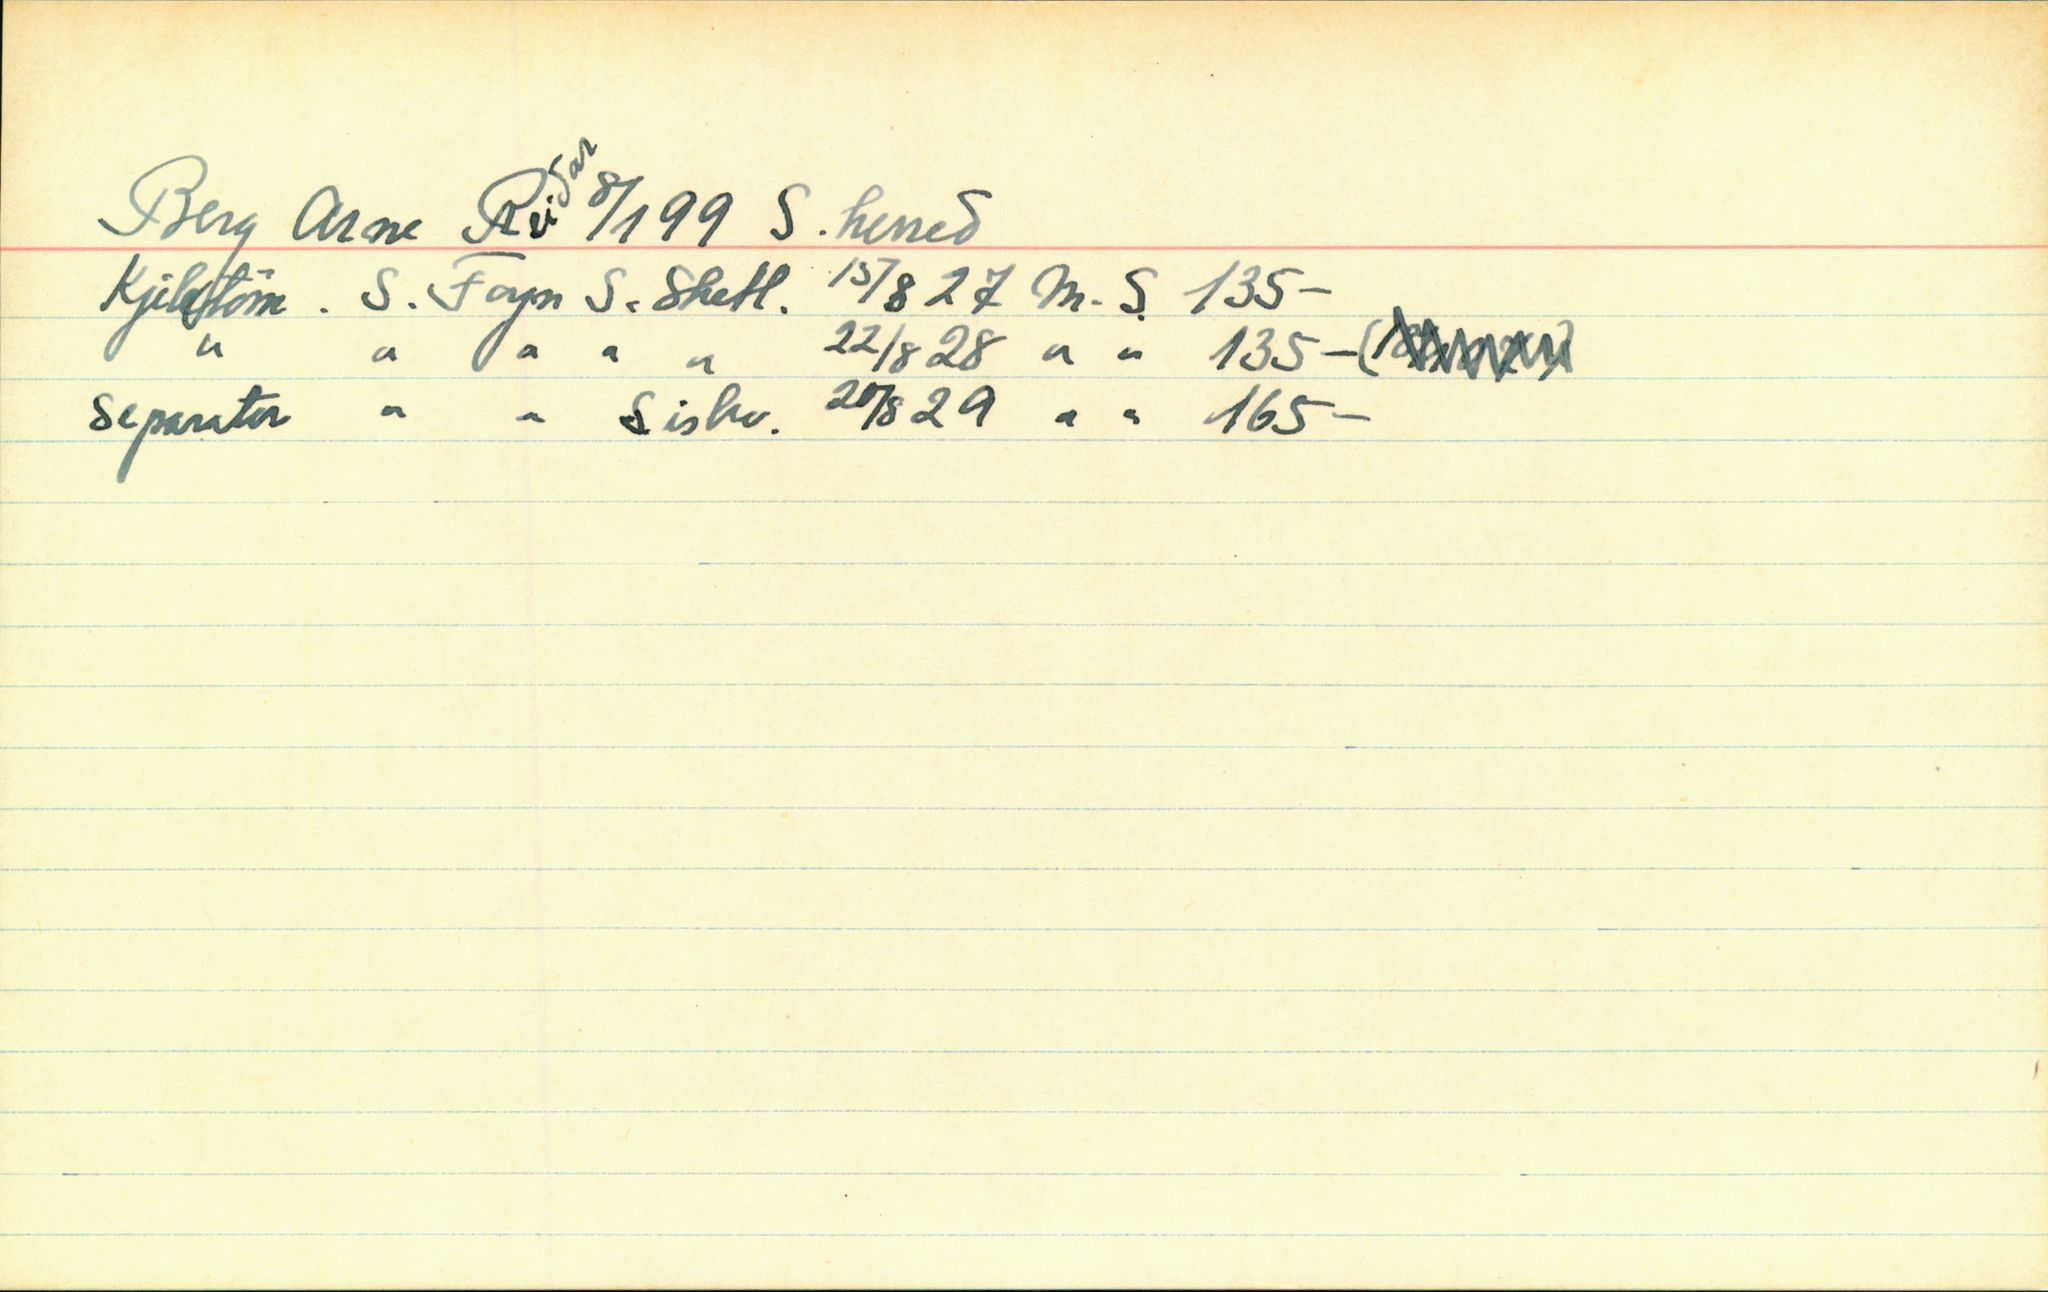 Berg Arne Reidar 8/1 99 S. herred
Kjeletöm. S. Foyn S. Shetl. 15/8 27 M. S. 135-
" " " " " 22/8 28 " " 135-
Separator " " Sishv. 20/8 29 " " 165-